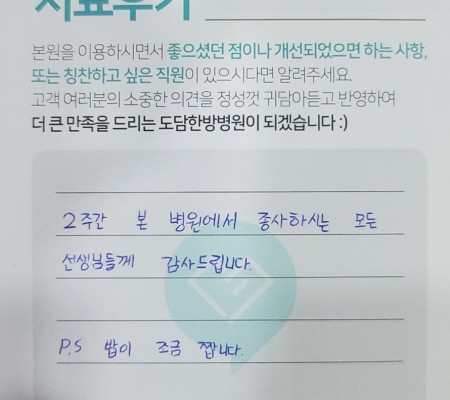 치료후기
본원을 이용하시면서 좋으셨던 점이나 개선되었으면 하는 사항,
또는 칭찬하고 싶은 직원이 있으시다면 알려주세요.
고객 여러분의 소중한 의견을 정성껏 귀담아듣고 반영하여
더 큰 만족을 드리는 도담한방병원이 되겠습니다 :)
2주간 본 병원에서 종사하시는 모든
선생님들께 감사드립니다.
P.S 밥이 조금 짭니다.